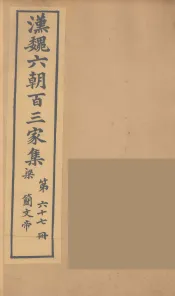 漢魏六朝百三家集
梁
簡文帝
第六十七冊